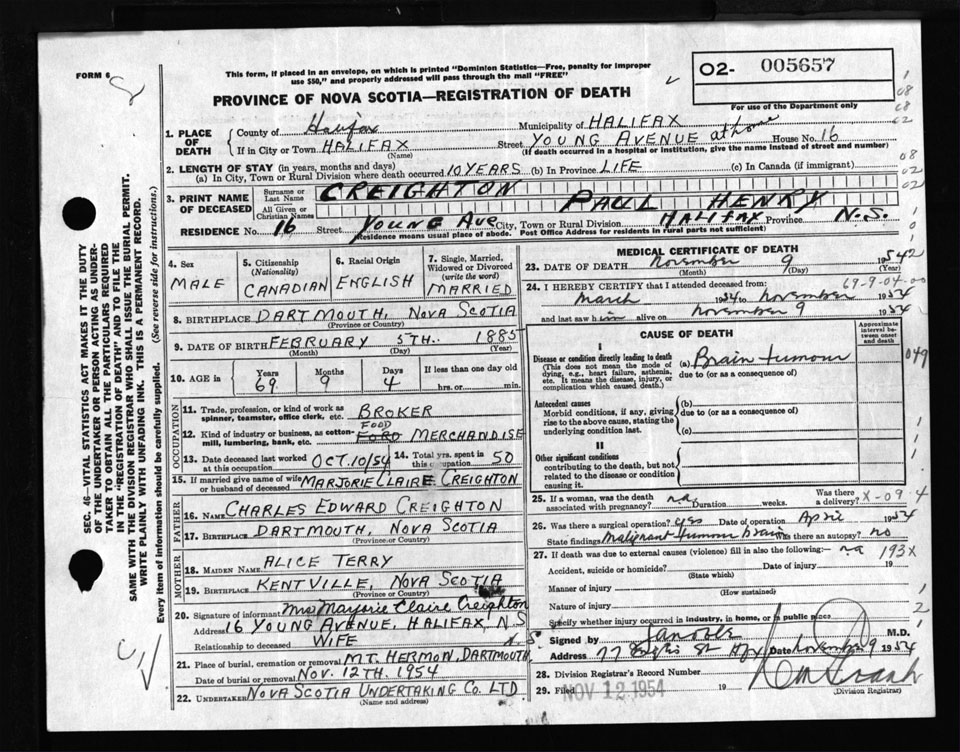 FORM 6
This form, if placed in an envelope, on which is printed "Dominion Statistics—Free, penalty for improper
use $50," and properly addressed will pass through the mail "FREE"
02- 005657
For use of the Department only
PROVINCE OF NOVA SCOTIA—REGISTRATION OF DEATH
1. PLACE OF DEATH
County of Halifax Municipality of HALIFAX
If in City or Town HALIFAX Street YOUNG AVENUE at home House No. 16
(Name) (If death occurred in a hospital or institution, give the name instead of street and number)
2. LENGTH OF STAY (in years, months and days)
(a) In City, Town or Rural Division where death occurred 10 YEARS (b) In Province LIFE (c) In Canada (if immigrant)
3. PRINT NAME OF DECEASED
Surname or Last Name CREIGHTON
All Given or Christian Names PAUL HENRY
RESIDENCE No. 16 Street YOUNG AVE City, Town or Rural Division HALIFAX Province N.S.
Residence means usual place of abode. Post Office Address for residents in rural parts not sufficient)
4. Sex MALE
5. Citizenship (Nationality) CANADIAN
6. Racial Origin ENGLISH
7. Single, Married, Widowed or Divorced (write the word) MARRIED
8. BIRTHPLACE DARTMOUTH, NOVA SCOTIA
(Province or Country)
9. DATE OF BIRTH FEBRUARY 5TH. 1885
(Month) (Day) (Year)
10. AGE in Years 69 Months 9 Days 4 If less than one day old hrs. or min.
OCCUPATION
11. Trade, profession, or kind of work as spinner, teamster, office clerk, etc. BROKER
12. Kind of industry or business, as cotton-mill, lumbering, bank, etc. FORD FOOD MERCHANDISE
13. Date deceased last worked at this occupation OCT. 10/54
14. Total yrs. spent in this occupation 50
15. If married give name of wife or husband of deceased MARJORIE CLAIRE CREIGHTON
FATHER
16. NAME CHARLES EDWARD CREIGHTON
17. BIRTHPLACE DARTMOUTH, NOVA SCOTIA
(Province or Country)
MOTHER
18. MAIDEN NAME ALICE TERRY
19. BIRTHPLACE KENTVILLE, NOVA SCOTIA
(Province or Country)
20. Signature of informant Mrs Marjorie Claire Creighton
Address 16 YOUNG AVENUE, HALIFAX, N.S
Relationship to deceased WIFE N.S.
21. Place of burial, cremation or removal MT. HERMON, DARTMOUTH
Date of burial or removal NOV. 12TH. 1954
22. UNDERTAKER NOVA SCOTIA UNDERTAKING CO. LTD
(Name and address)
MEDICAL CERTIFICATE OF DEATH
23. DATE OF DEATH November 9 1954
(Month) (Day) (Year)
24. I HEREBY CERTIFY that I attended deceased from: 69-9-04-00
March 1954 to November 1954
and last saw him alive on November 9 1954
CAUSE OF DEATH
Approximate interval between onset and death
I
Disease or condition directly leading to death (a) Brain tumour 049
(This does not mean the mode of dying, e.g., heart failure, asthenia, etc. It means the disease, injury, or complication which caused death.)
due to (or as a consequence of)
Antecedent causes (b)
Morbid conditions, if any, giving rise to the above cause, stating the underlying condition last.
due to (or as a consequence of)
(c)
II
Other significant conditions
contributing to the death, but not related to the disease or condition causing it.
25. If a woman, was the death associated with pregnancy? na Duration weeks. Was there a delivery? X-09-4
26. Was there a surgical operation? yes Date of operation April 1954
State findings Malignant tumour brain Was there an autopsy? no
27. If death was due to external causes (violence) fill in also the following:- na 193X
Accident, suicide or homicide? Date of injury 19
(State which)
Manner of injury
(How sustained)
Nature of injury
Specify whether injury occurred in industry, in home, or in public place
Signed by M.D.
Address 77 St Hfx Date November 9 1954
28. Division Registrar's Record Number
29. Filed NOV 12 1954 19
(Division Registrar)
SEC. 46—VITAL STATISTICS ACT MAKES IT THE DUTY
OF THE UNDERTAKER OR PERSON ACTING AS UNDER-
TAKER TO OBTAIN ALL THE PARTICULARS REQUIRED
IN THE "REGISTRATION OF DEATH" AND TO FILE THE
SAME WITH THE DIVISION REGISTRAR WHO SHALL ISSUE THE BURIAL PERMIT.
WRITE PLAINLY WITH UNFADING INK. THIS IS A PERMANENT RECORD.
Every item of information should be carefully supplied. (See reverse side for instructions.)